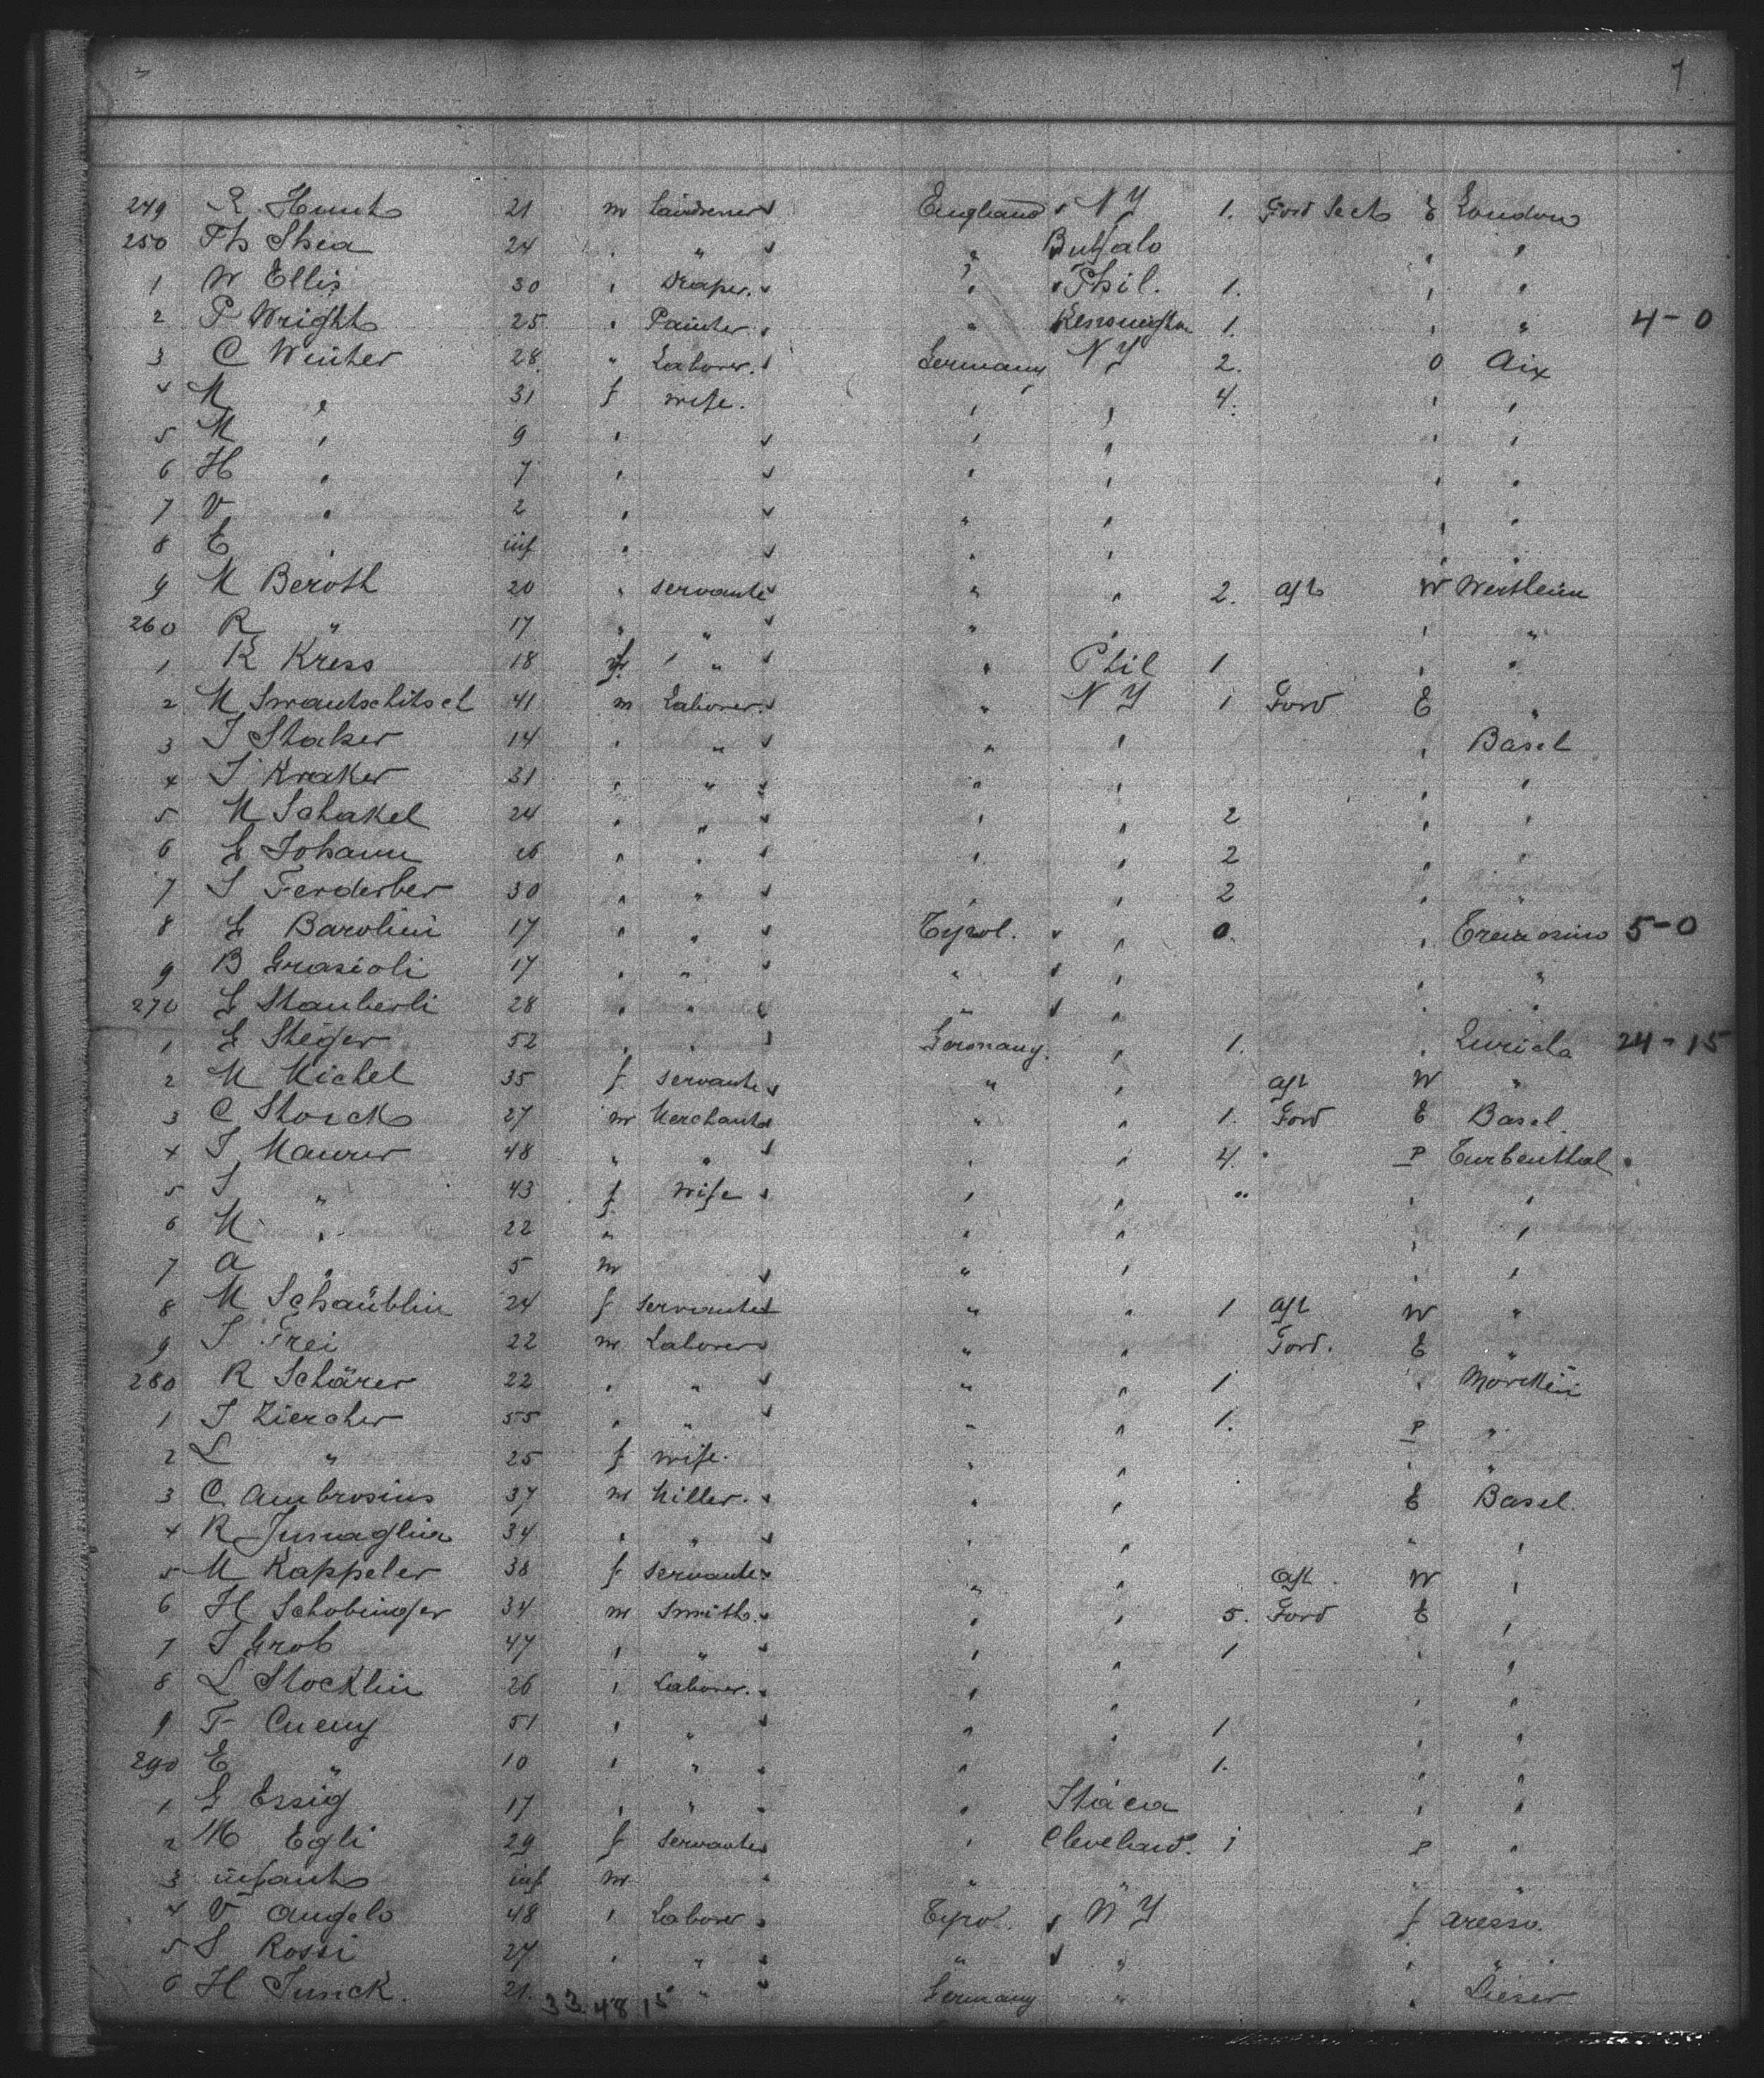 7
249 R. Hunt 21 m England NY 1. Ford Sect E London
250 Th Shea 24 " " " Buffalo " "
1 W Ellis 30 " Draper. " Phil. 1. " "
2 P Wright 25 " Painter " Kensington 1. " " 4-0
3 C Winter 28 " Laborer. Germany NY 2. O Aix
4 M " 31 f wife. " " 4. " "
5 M " 9 " " " " "
6 H " 7 " " " " "
7 V " 2 " " " " "
8 E " inf " " " " "
9 M Beroth 20 " servant " " 2. aft W Wertheim
260 R " 17 " " " " " "
1 K Kress 18 f " " Phil 1 " "
2 M 41 m Laborer " NY 1 Ford E "
3 J Staker 14 " " " " " Basel
4 J Kraker 31 " " " " " "
5 M Schakel 24 " " " " 2 " "
6 G Johann 26 " " " " 2 " "
7 J Ferderber 30 " " " " 2 " "
8 G Barolini 17 " " Tyrol. " 0. " 5-0
9 B Grasioli 17 " " " " " "
270 G Stauberli 28 " " " " " "
1 G Steger 52 " " Germany. " 1. " Zurich 24-15
2 M Michel 35 f servant " " aft W "
3 C Storck 27 m Merchant " " 1. Ford E Basel.
4 J Maurer 48 " " " " 4. " P Turbenthal
5 S " 43 f Wife " " " " "
6 M " 22 " " " " "
7 A " 5 m " " " "
8 M Schaüblin 24 f servant " " 1 aft W "
9 J Frei 22 m Laborer " " Ford. E "
280 R Schärer 22 " " " " 1 "
1 J Ziercher 55 " " " " 1. P "
2 L " 25 f wife. " " " "
3 C Ambrosius 37 m Miller. " " E Basel.
4 R 34 " " " " " "
5 M Kappeler 38 f servant " " aft. W "
6 H Schobinger 34 m Smith. " " 5. Ford E "
7 J Grob 47 " " " " 1 " "
8 L Stocklin 26 " Laborer. " " " "
9 F Cueny 51 " " " " 1 " "
290 E " 10 " " " " 1. " "
1 G Essig 17 " " " Itaca " "
2 M Egli 29 f servant " Cleveland. 1 P "
3 infant inf m " " " "
4 V Angelo 48 " Laborer Tyrol. NY f
5 S Rossi 27 " " " " " "
6 H Jusick. 21. " Germany " "
33 48 15